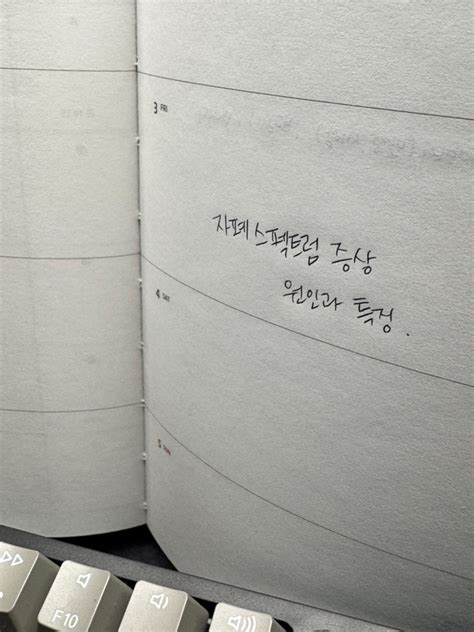 3 FRI
자폐스펙트럼 증상
원인과 특징.
4 SAT
5
F10